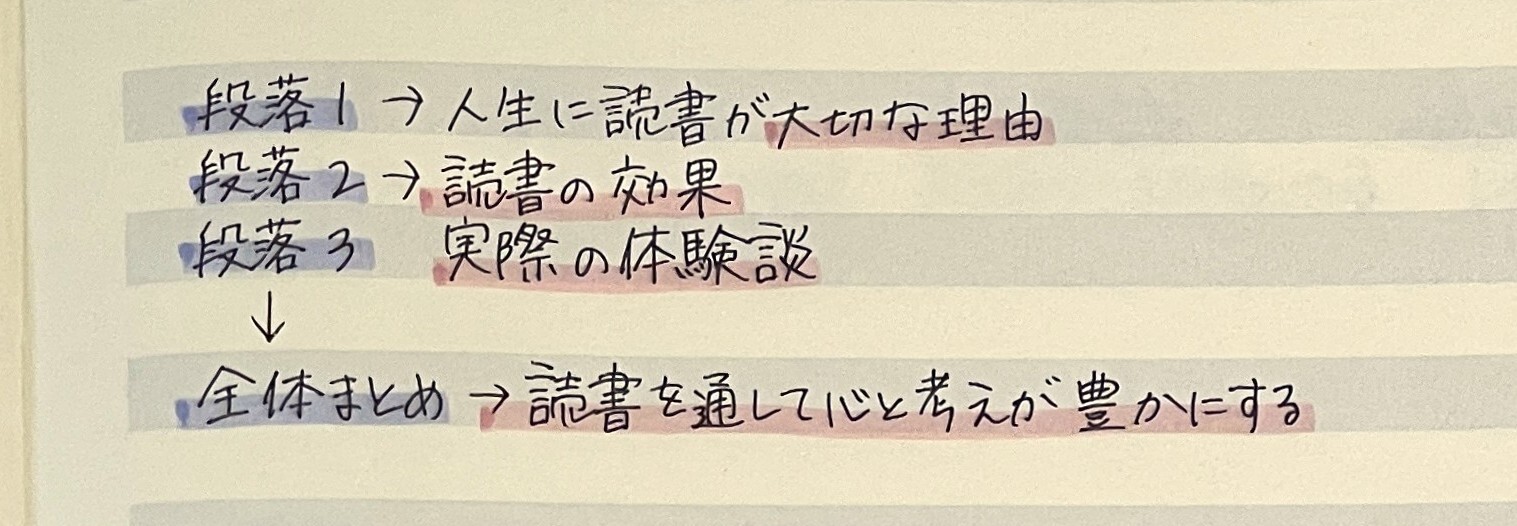 段落1 → 人生に読書が大切な理由
段落2 → 読書の効果
段落3 実際の体験談
↓
全体まとめ → 読書を通して心と考えが豊かにする